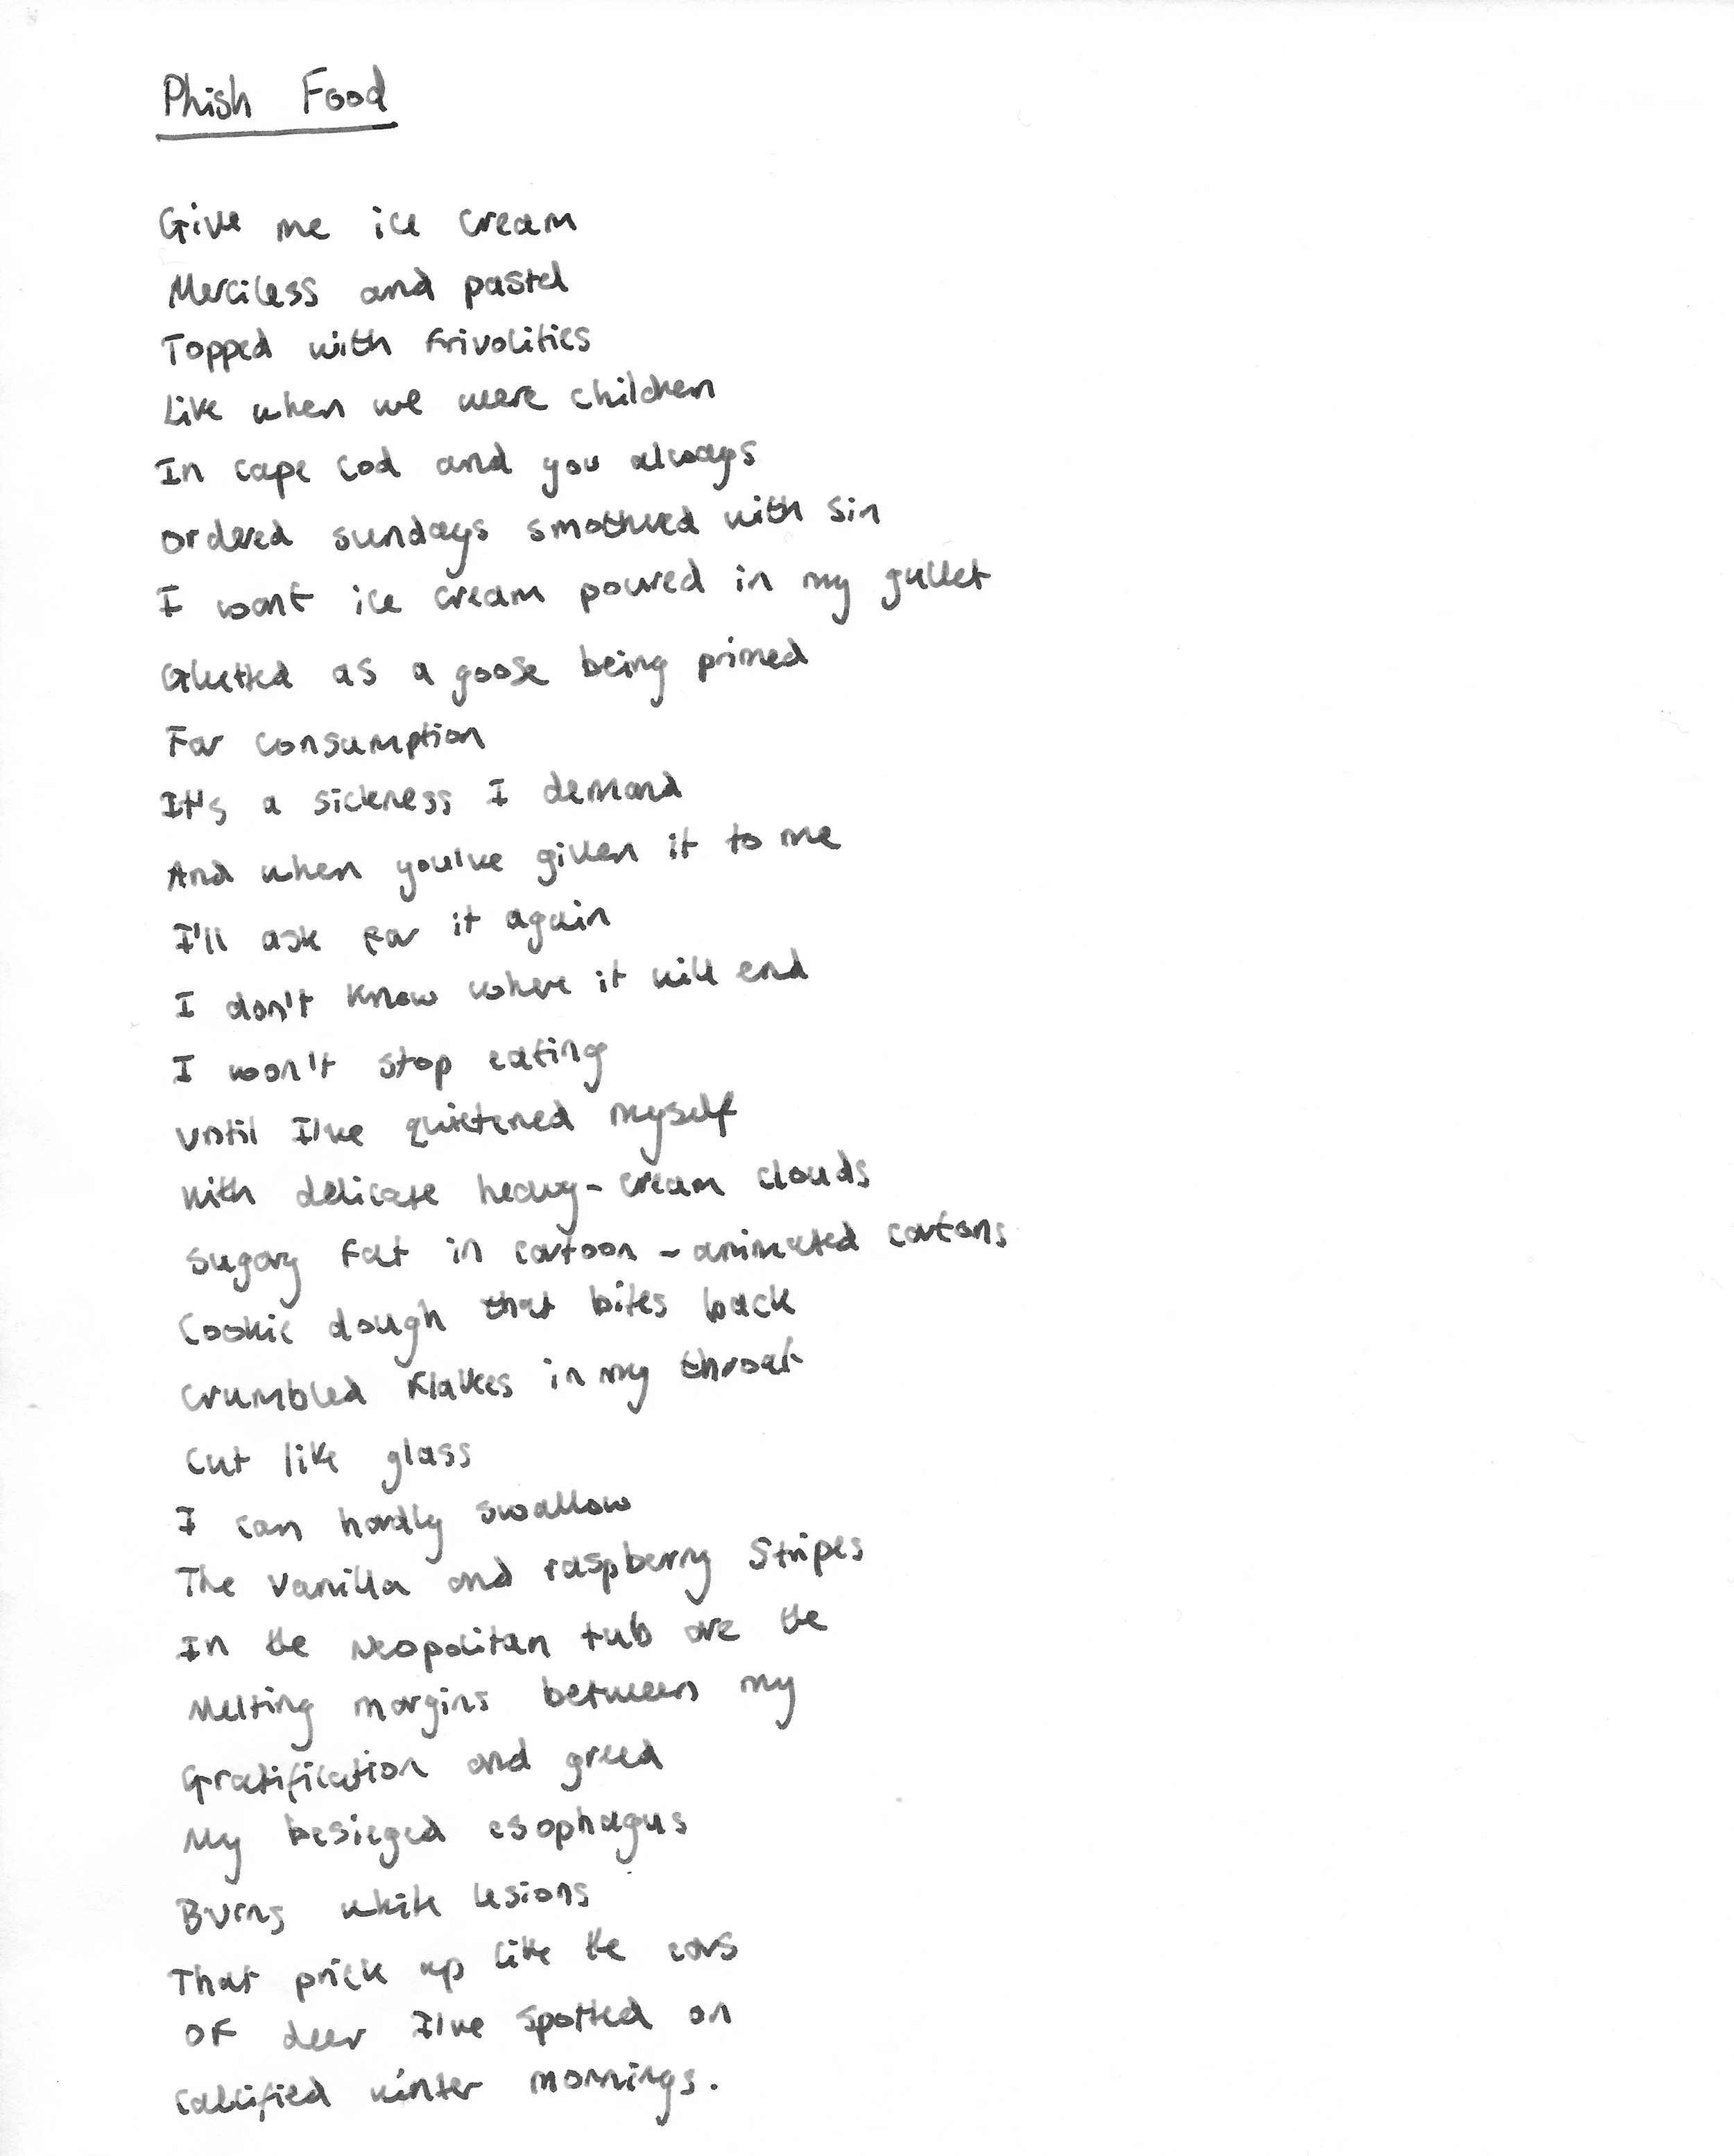 Phish Food
Give me ice cream
Merciless and pastel
Topped with frivolities
Like when we were children
In cape cod and you always
ordered sundays smothered with sin
I want ice cream poured in my gullet
Glutted as a goose being primed
For consumption
It's a sickness I demand
And when you've given it to me
I'll ask for it again
I don't know where it will end
I won't stop eating
until I've quietened myself
with delicate heavy-cream clouds
sugary fat in cartoon-animated cartons
Cookie dough that bites back
crumbled flakes in my throat
cut like glass
I can hardly swallow
The vanilla and raspberry stripes
In the Neopolitan tub are the
Melting margins between my
Gratification and greed
My besieged esophagus
Burns white lesions
That prick up like the ears
OF deer I've spotted on
calcified winter mornings.